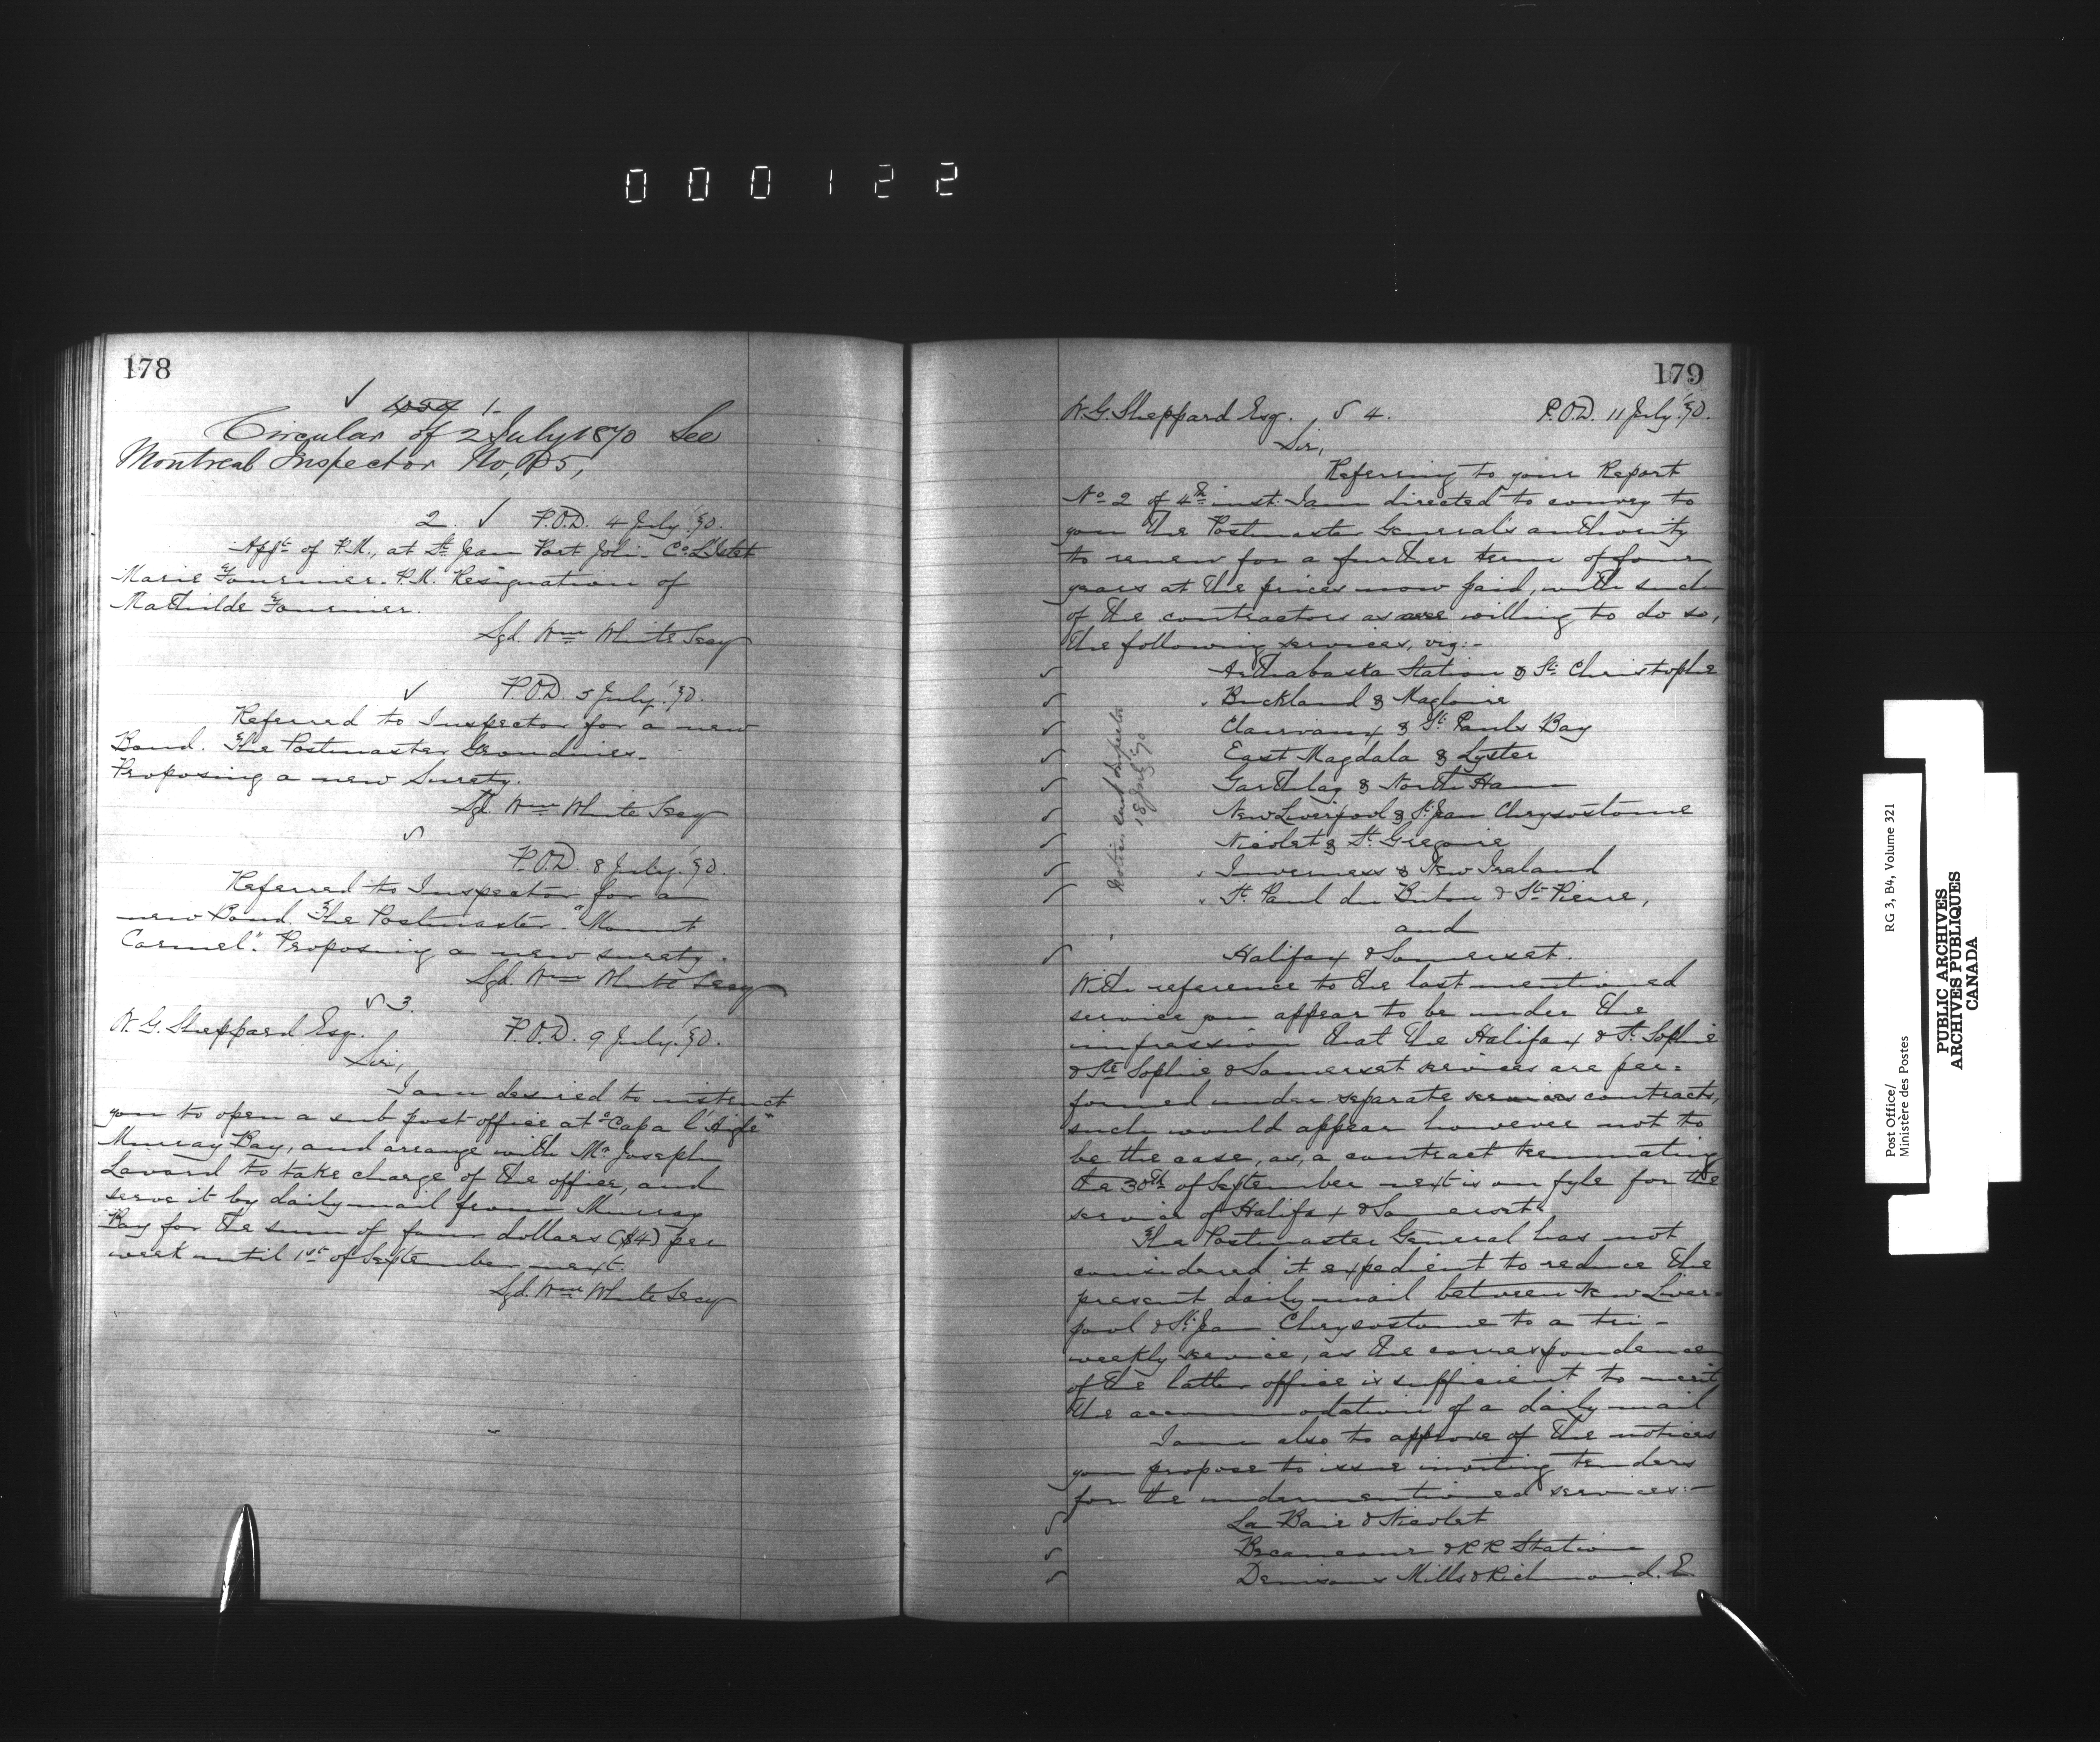 000122
178
1.
Circular of 2 July 1870 See
Montreal Inspector No,
2. P.O.D. 4 July '70.
App.t of P.M., at St Jean Port Joli. Co L'Islet
Marie Fournier. P.M. Resignation of
Mathilde Fournier.
Sgd. Wm White Secy
P.O.D. 5 July '70.
Referred to Inspector for a new
Bond. The Postmaster Grondines.
Proposing a new Surety.
Sgd. Wm White Secy
P.O.D. 8 July '70.
Referred to Inspector for a
new Bond. The Postmaster. "Mount
Carmel". Proposing a new surety.
Sgd. Wm White Secy
3.
W. G. Sheppard Esq. P.O.D. 9 July '70.
Sir,
I am desired to instruct
you to open a sub post office at "Cap a l'Aigle"
Murray Bay, and arrange with Mr Joseph
Lavard to take charge of the office, and
serve it by daily mail from Murray
Bay for the sum of four dollars ($4) per
week until 1st of September next.
Sgd. Wm White Secy
179
W. G. Sheppard Esq. 4. P.O.D. 11 July '70.
Sir,
Referring to your Report
No 2 of 4th inst. I am directed to convey to
you the Postmaster General's authority
to renew for a further term of four
years at the prices now paid, with such
of the contractors as are willing to do so,
the following services, viz:-
Arthabaska Station & St. Christophe
Buckland & Magloire
Clairvaux & St. Pauls Bay
East Magdala & Lyster
Garthby & North Ham
New Liverpool & St. Jean Chrysostome
Nicolet & St. Gregoire
Inverness & New Ireland
St. Paul du Buton & St. Pierre,
and
Halifax & Somerset.
Notice sent Inspector
18 July '70
With reference to the last mentioned
service you appear to be under the
impression that the Halifax & St. Sophie
& Ste Sophie & Somerset services are per=
formed under separate contracts,
such would appear however not to
be the case, as, a contract terminating
the 30th of September next is on fyle for the
service of Halifax & Somerset.
The Postmaster General has not
considered it expedient to reduce the
present daily mail between New Liver=
pool & St. Jean Chrysostome to a tri-
weekly service, as the correspondence
of the latter office is sufficient to merit
the accommodation of a daily mail
I am also to approve of the notices
you propose to issue inviting tenders
for the undermentioned services:-
La Baie & Nicolet
Becancour & RR Station
Denisons Mills & Richmond. E.
Post Office/
Ministère des Postes
RG 3, B4, Volume 321
PUBLIC ARCHIVES
ARCHIVES PUBLIQUES
CANADA